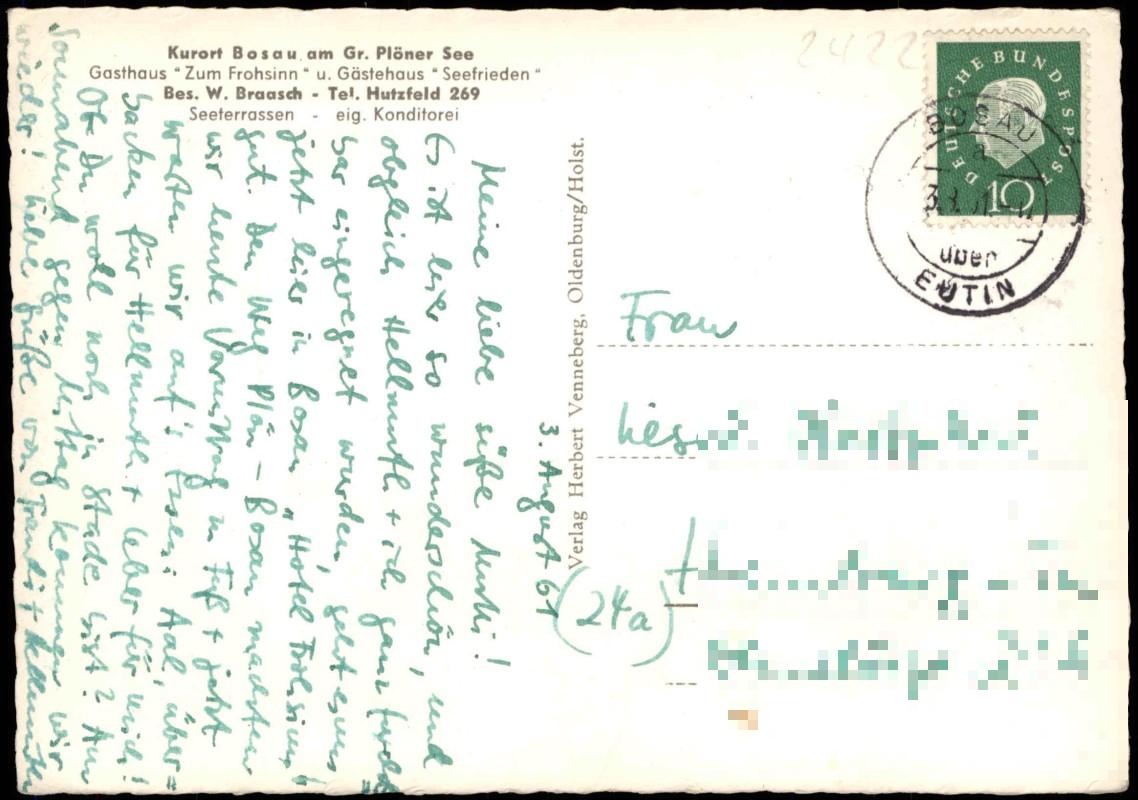 Kurort Bosau am Gr. Plöner See
Gasthaus "Zum Frohsinn" u. Gästehaus "Seefrieden"
Bes. W. Braasch - Tel. Hutzfeld 269
Seeterrassen - eig. Konditorei
3. August 61
Meine liebe süße Mutti!
Es ist hier so wunderschön, und
obgleich Hellmuth + ich ganz
bar eingeregnet wurden, geht es uns
jetzt hier in Bosau „Hotel Frohsinn"
gut. Den Weg Plön - Bosau machten
wir heute Vormittag zu Fuß + jetzt
warten wir auf's Essen: Aal, über=
backen für Hellmuth + Leber für mich!
Ob Du wohl noch in Stade bist? Am
Sonnabend gegen Mittag kommen wir
wieder! Liebe Grüße von Traudi + Hellmuth
Verlag Herbert Venneberg, Oldenburg/Holst.
2422
DEUTSCHE BUNDESPOST
10
BOSAU
a
über
EUTIN
Frau
(24a)